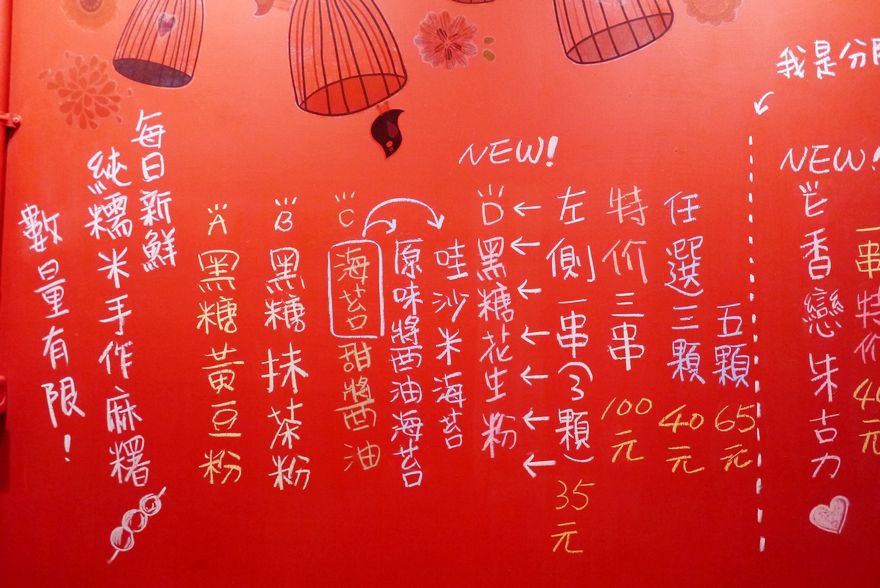 每日新鮮
純糯米手作麻糬
數量有限!
A 黑糖黃豆粉
B 黑糖抹茶粉
C 海苔甜醬油
原味醬油海苔
哇沙米海苔
NEW!
D 黑糖花生粉
左側一串(3顆) 35元
特价三串 100元
任選三顆 40元
五顆 65元
我是分
NEW!
E 香戀朱古力
一串特价 40元